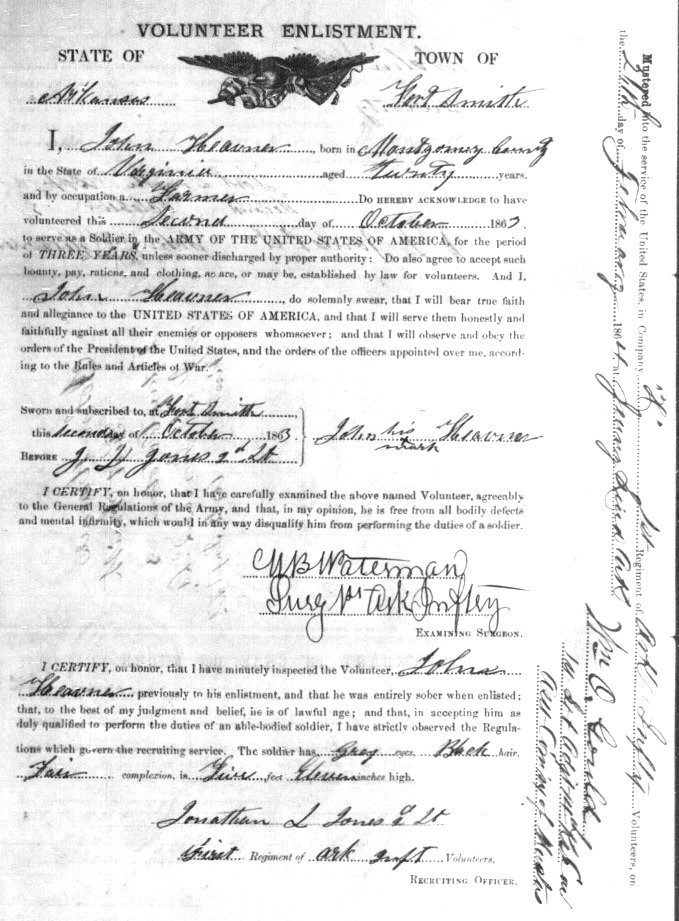 VOLUNTEER ENLISTMENT.
STATE OF TOWN OF
Arkansas Fort Smith
I, John Heavner, born in Montgomery County
in the State of Virginia aged Twenty years,
and by occupation a Farmer Do HEREBY ACKNOWLEDGE to have
volunteered this Second day of October 1863.
to serve as a Soldier in the ARMY OF THE UNITED STATES OF AMERICA, for the period
of THREE YEARS, unless sooner discharged by proper authority: Do also agree to accept such
bounty, pay, rations, and clothing, as are, or may be, established by law for volunteers. And I,
John Heavner, do solemnly swear, that I will bear true faith
and allegiance to the UNITED STATES OF AMERICA, and that I will serve them honestly and
faithfully against all their enemies or opposers whomsoever; and that I will observe and obey the
orders of the President of the United States, and the orders of the officers appointed over me, accord-
ing to the Rules and Articles of War.
Sworn and subscribed to, at Fort Smith
this second day of October 1863
BEFORE J. L. Jones 2d Lt
John his mark Heavner
I CERTIFY, on honor, that I have carefully examined the above named Volunteer, agreeably
to the General Regulations of the Army, and that, in my opinion, he is free from all bodily defects
and mental infirmity, which would in any way disqualify him from performing the duties of a soldier.
Waterman
Surg 1st Ark Inftry
EXAMINING SURGEON.
I CERTIFY, on honor, that I have minutely inspected the Volunteer, John
Heavner previously to his enlistment, and that he was entirely sober when enlisted;
that, to the best of my judgment and belief, he is of lawful age; and that, in accepting him as
duly qualified to perform the duties of an able-bodied soldier, I have strictly observed the Regula-
tions which govern the recruiting service. The soldier has Grey eyes, Black hair,
Fair complexion, is Five feet Eleven inches high.
Jonathan L Jones 2d Lt
First Regiment of Ark Inft Volunteers,
RECRUITING OFFICER.
Mustered into the service of the United States, in Company 1st Regiment of Ark Inftry Volunteers, on
the day of January 1864, at Jenny Lind Ark
Wm O. Gould